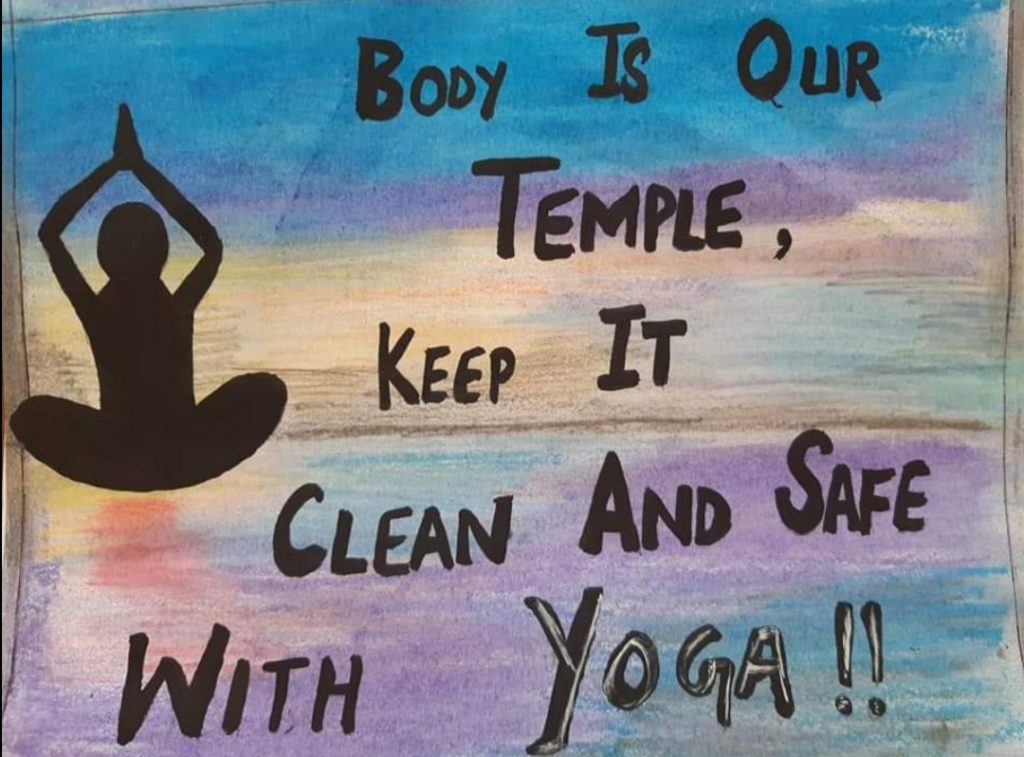 Body Is Our
Temple,
Keep It
Clean And Safe
With Yoga!!